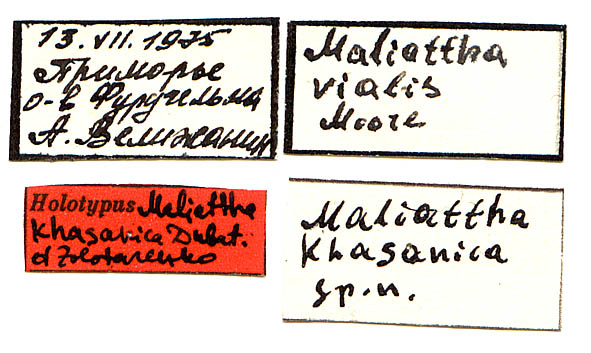 13.VII.1975
Приморье
о-в Фуругельма
А. Велижанин
Maliattha
vialis
Moore
Holotypus Maliattha
khasanica Dubat.
et Zolotarenko
Maliattha
khasanica
sp.n.